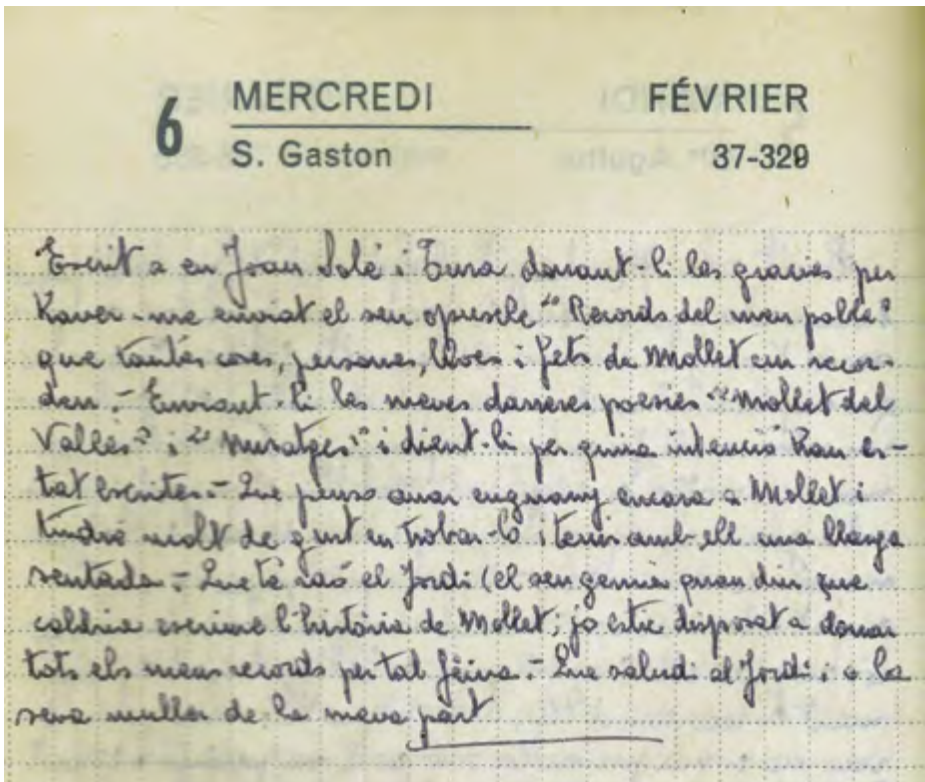 6 MERCREDI FÉVRIER
S. Gaston 37-329
Escrit a en Joan Solé i Tura donant-li les gracies per
haver-me enviat el seu opuscle "Records del meu poble"
que tantes coses, persones, llocs i fets de Mollet em recor-
den.- Enviant-li les meves darreres poesies "Mollet del
Vallès" i "Miratges" i dient-li per quina intenció han es-
tat escrites.- Que penso anar enguany encara a Mollet i
tindré molt de gust en trobar-lo i tenir amb ell una llarga
sentada - Que té raó el Jordi (el seu germà quan diu que
caldria escriure l'història de Mollet; jo estic disposat a donar
tots els meus records per tal feina.- Que saludi al Jordi i a la
seva muller de la meva part